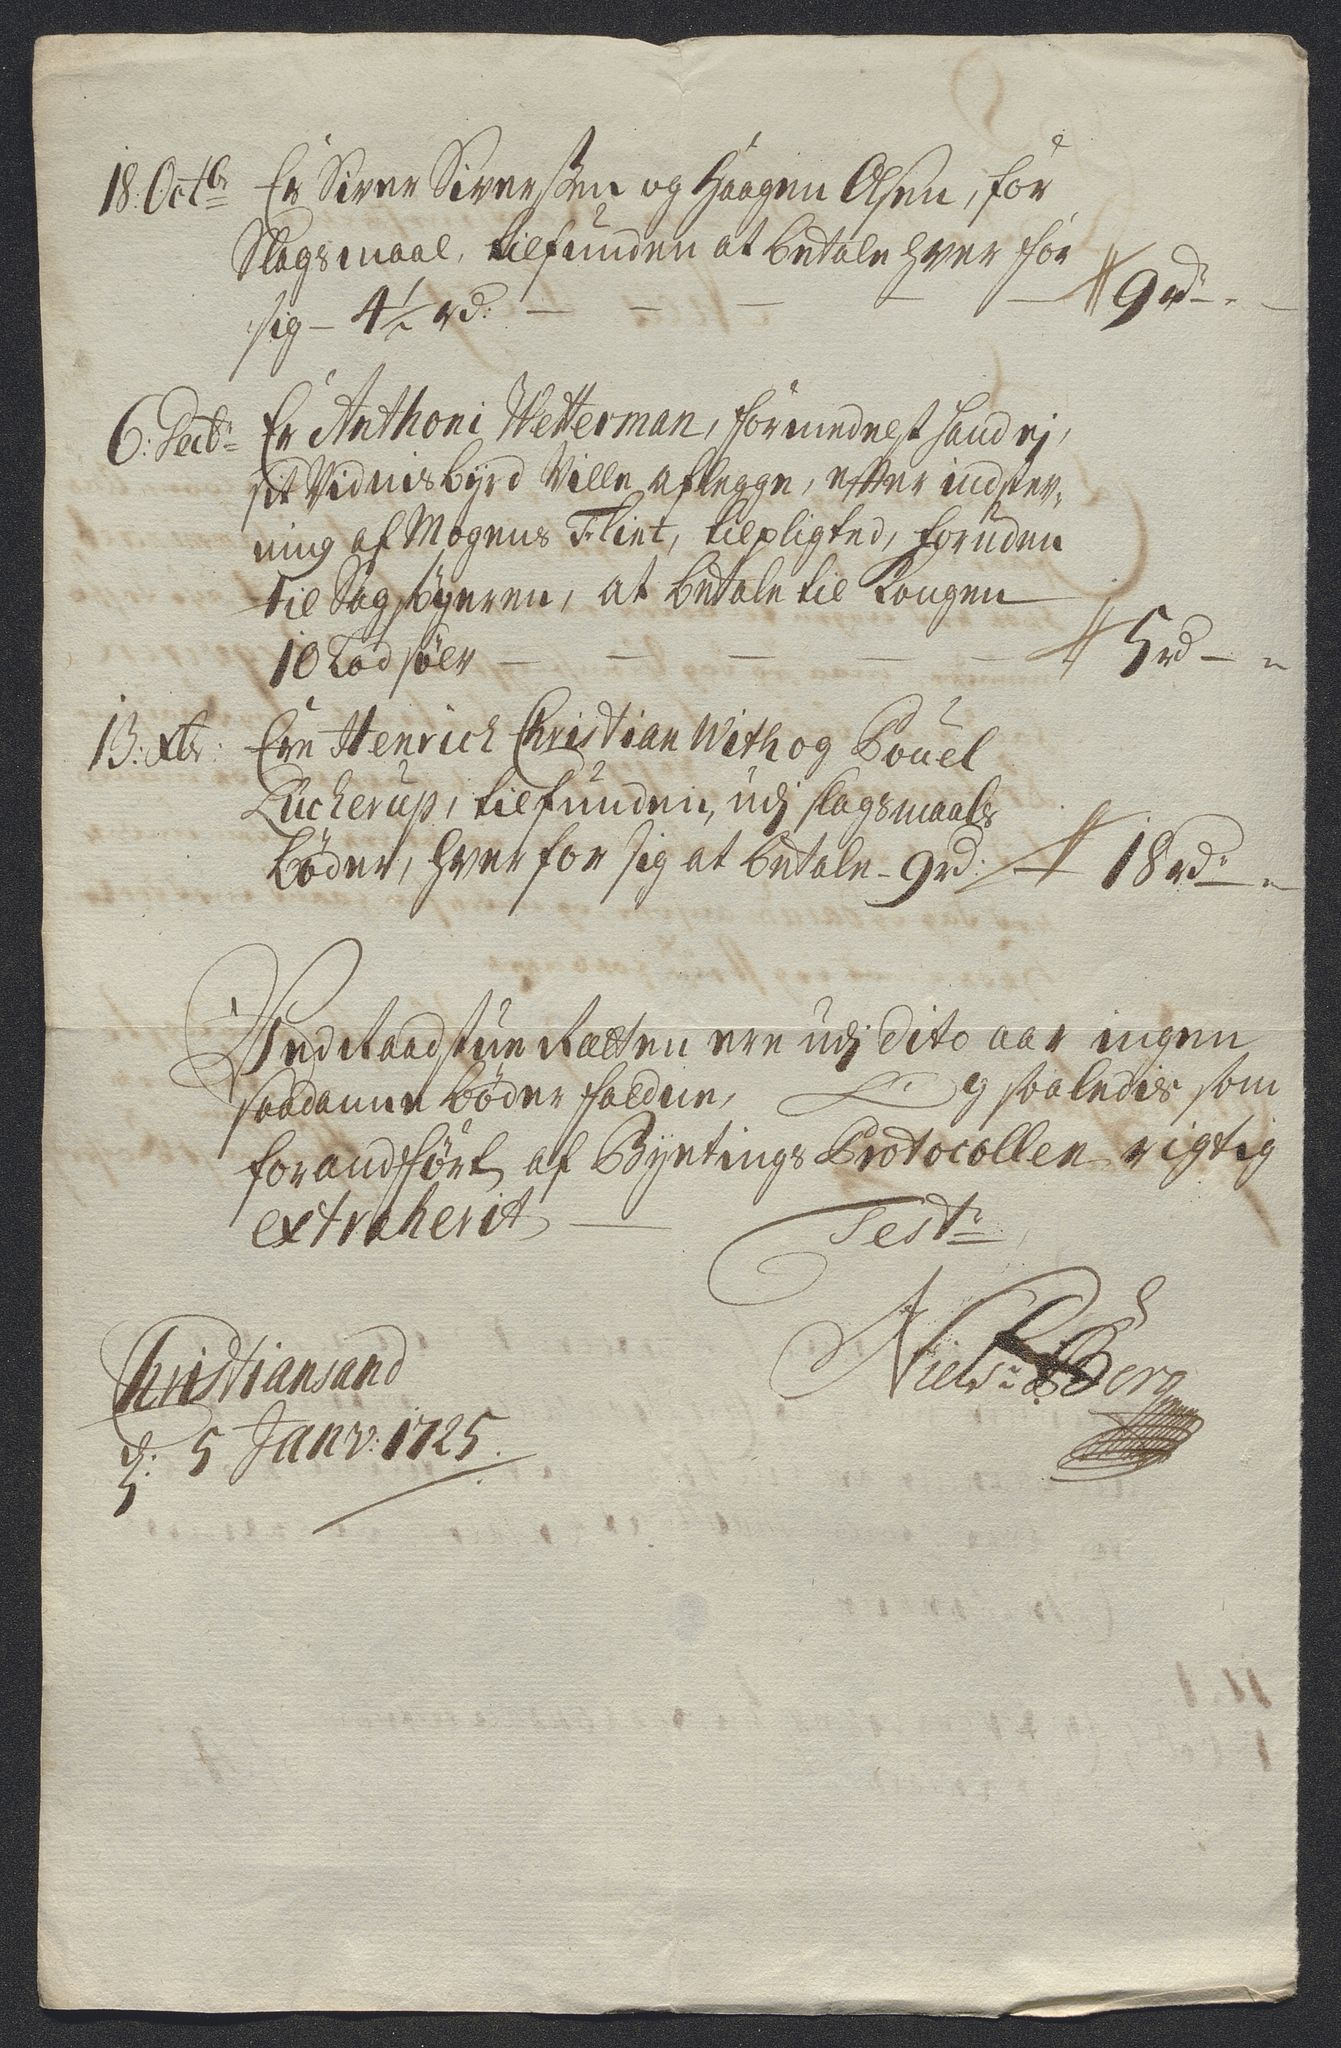 18. Octb: Er Siver Siverßen og Haagen Olsen, for
Slagsmaal, tilfunden at betale hver for
sig - 4½ rd: - - - - - 9 rd: - -
6: Decb: Er Anthoni Wetterman, formedelst hand ej,
sit Vidnisbyrd Ville aflegge, efter indstev,,
ning af Mogens Fliet, tilpligted, foruden
til Sagsøgeren, at betale til Kongen
10 Lod sølv - - - - - 5 rd - -
13: Xbr: Ere Henrich Christian With og Pouel
Lucherup, tilfunden, udj slagsmaals
bøder, hver for sig at betale - 9 rd: - 18 rd: - -
Ved Raadstue Retten ere udj dito aar ingen
saadanne bøder faldne, Og saaledis som
forandført af Byetings Protocollen rigtig
extraherit - Test:
Christiansand
d: 5 Janv: 1725.
Niels Berg